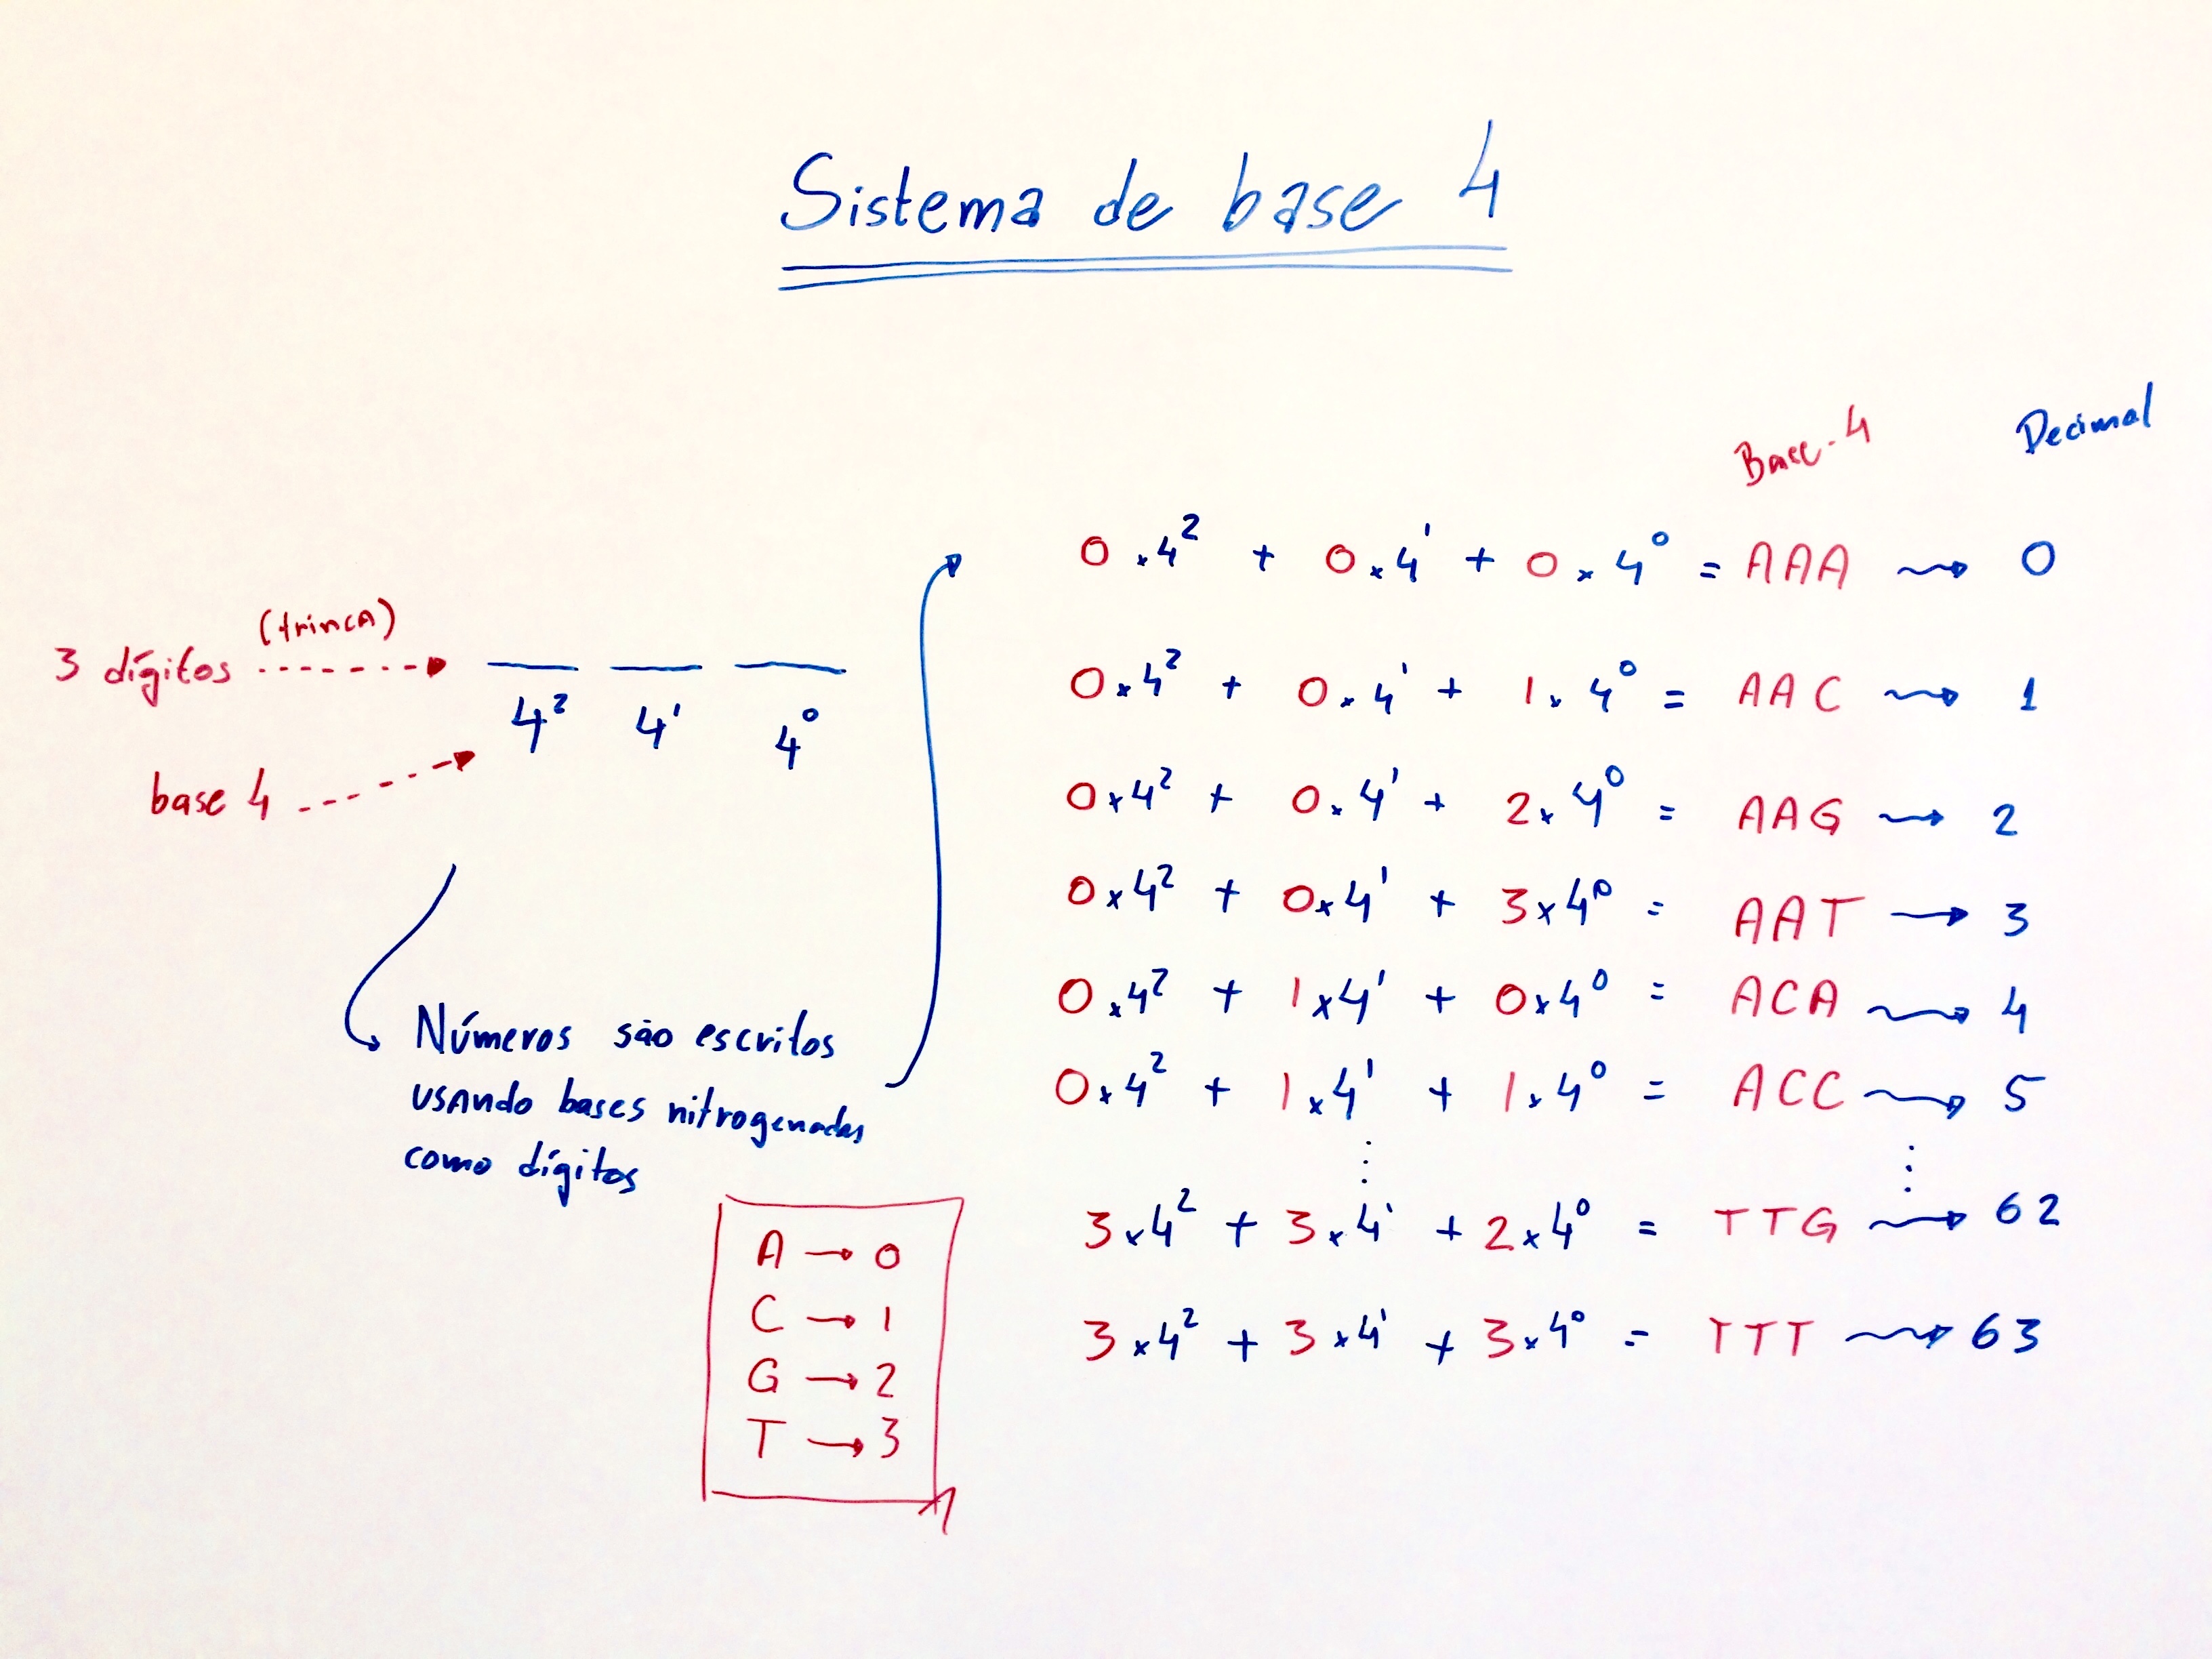 Sistema de base 4
3 dígitos (trinca)
4² 4¹ 4⁰
base 4
Números são escritos
usando bases nitrogenadas
como dígitos
A → 0
C → 1
G → 2
T → 3
Base-4 Decimal
0 × 4² + 0 × 4¹ + 0 × 4⁰ = AAA → 0
0 × 4² + 0 × 4¹ + 1 × 4⁰ = AAC → 1
0 × 4² + 0 × 4¹ + 2 × 4⁰ = AAG → 2
0 × 4² + 0 × 4¹ + 3 × 4⁰ = AAT → 3
0 × 4² + 1 × 4¹ + 0 × 4⁰ = ACA → 4
0 × 4² + 1 × 4¹ + 1 × 4⁰ = ACC → 5
⋮ ⋮
3 × 4² + 3 × 4¹ + 2 × 4⁰ = TTG → 62
3 × 4² + 3 × 4¹ + 3 × 4⁰ = TTT → 63